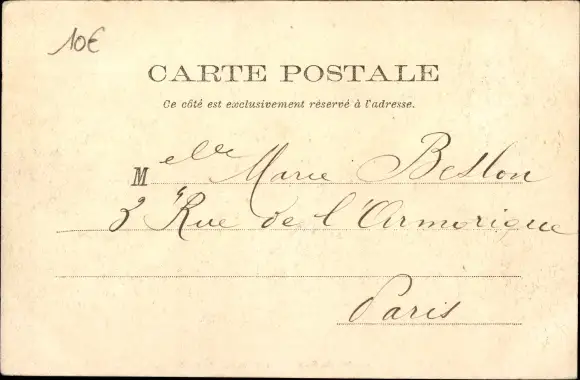 10€
CARTE POSTALE
Ce côté est exclusivement réservé à l'adresse.
Melle Marie Beslon
3 Rue de l'Armorique
Paris